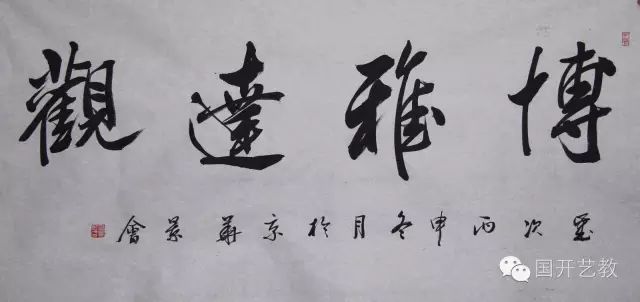 博雅達觀
歲次丙申冬月於京華景會
国开艺教